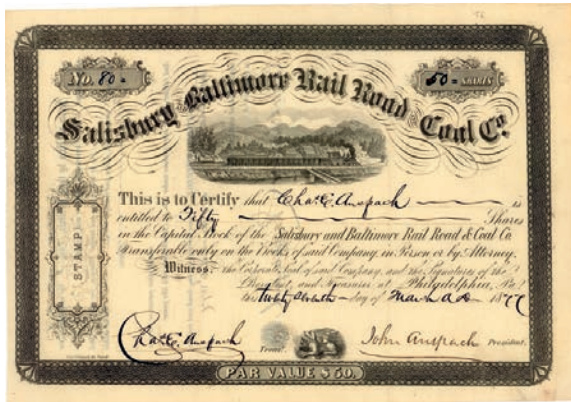 No. 80
50 SHARES
Salisbury and Baltimore Rail Road and Coal Co.
This is to Certify that Chas. E. Anspach is
entitled to Fifty Shares
in the Capital Stock of the Salisbury and Baltimore Rail Road & Coal Co.
transferable only on the Books of said Company, in Person or by Attorney.
Witness, the Corporate Seal of said Company, and the Signatures of the
President, and Treasurer at Philadelphia, Pa.
this twenty seventh day of March A D 1877
STAMP
Chas. E. Anspach Treasr.
John Anspach President.
PAR VALUE $50.